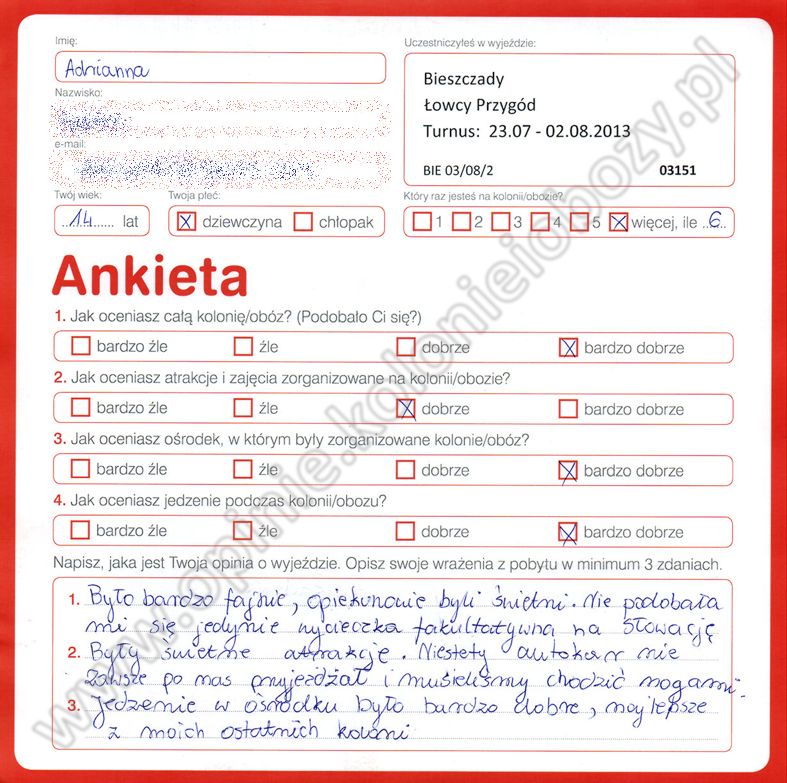 Imię:
Adrianna
Uczestniczyłeś w wyjeździe:
Bieszczady
Łowcy Przygód
Turnus: 23.07 - 02.08.2013
BIE 03/08/2 03151
Nazwisko:
e-mail:
Twój wiek:
14 lat
Twoja płeć:
dziewczyna chłopak
Który raz jesteś na kolonii/obozie?
1 2 3 4 5 więcej, ile 6
Ankieta
1. Jak oceniasz całą kolonię/obóz? (Podobało Ci się?)
bardzo źle źle dobrze bardzo dobrze
2. Jak oceniasz atrakcje i zajęcia zorganizowane na kolonii/obozie?
bardzo źle źle dobrze bardzo dobrze
3. Jak oceniasz ośrodek, w którym były zorganizowane kolonie/obóz?
bardzo źle źle dobrze bardzo dobrze
4. Jak oceniasz jedzenie podczas kolonii/obozu?
bardzo źle źle dobrze bardzo dobrze
Napisz, jaka jest Twoja opinia o wyjeździe. Opisz swoje wrażenia z pobytu w minimum 3 zdaniach.
1. Było bardzo fajnie, opiekunowie byli świetni. Nie podobała
mi się jedynie wycieczka fakultatywna na Słowację
2. Były świetne atrakcje. Niestety autokar nie
zawsze po nas przyjeżdżał i musieliśmy chodzić nogami.
3. Jedzenie w ośrodku było bardzo dobre, najlepsze
z moich ostatnich koloni
www.opinie.kolonieiobozy.pl